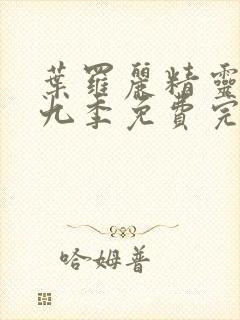 葉羅麗精靈
九季免費完
哈姆普